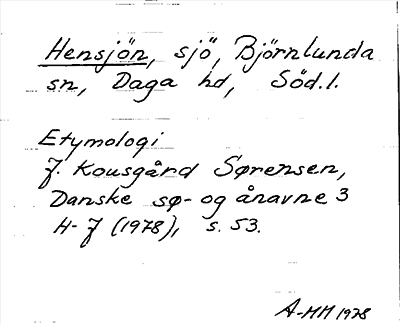 Hensjön, sjö, Björnlunda
sn, Daga hd, Söd.l.
Etymologi
J. Kousgård Sørensen,
Danske sø- og ånavne 3
H-J (1978), s. 53.
A-MM 1978